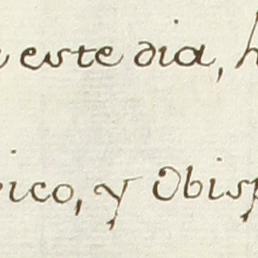 este dia,
ico, y Obisp